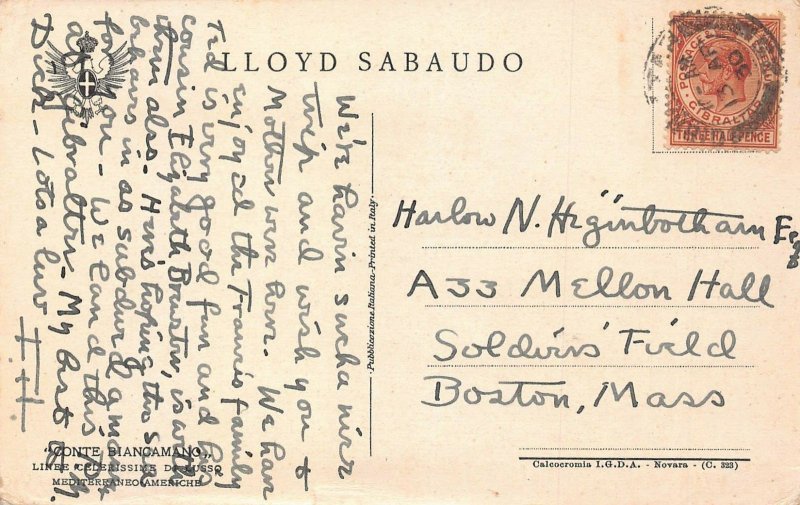 LLOYD SABAUDO
We're havin sucha nice
trip and wish you &
Mother were here. We have
enjoyed the Travis family
Ted is very good fun and his
cousin Elizabeth Brewster, is with
them also. Here's hoping the sea
behaves in as subdued a manner
for you - We land this P.M.
at Gibralter - My best to
Dick - Lotsa luv
"CONTE BIANCAMANO"
LINEE CELERISSIME DI LUSSO
MEDITERRANEO AMERICHE
Pubblicazione Italiana - Printed in Italy
POSTAGE & REVENUE
GIBRALTAR
THREE HALF PENCE
Harlow N. Higinbotham Esq
A33 Mellon Hall
Soldiers' Field
Boston, Mass
Calcocromia I.G.D.A. - Novara - (C. 323)